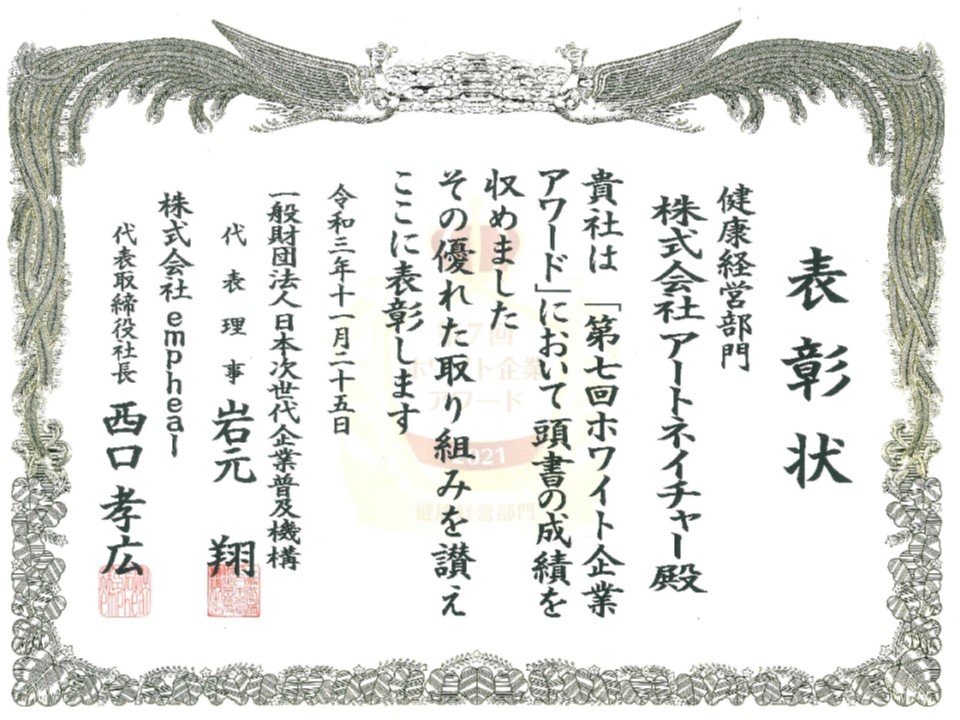 表彰状
健康経営部門
株式会社アートネイチャー殿
貴社は「第七回ホワイト企業
アワード」において頭書の成績を
収めました
その優れた取り組みを讃え
ここに表彰します
令和三年十一月二十五日
一般財団法人日本次世代企業普及機構
代表理事 岩元 翔
株式会社empheal
代表取締役社長 西口孝広
第7回
ホワイト企業
アワード
2021
健康経営部門